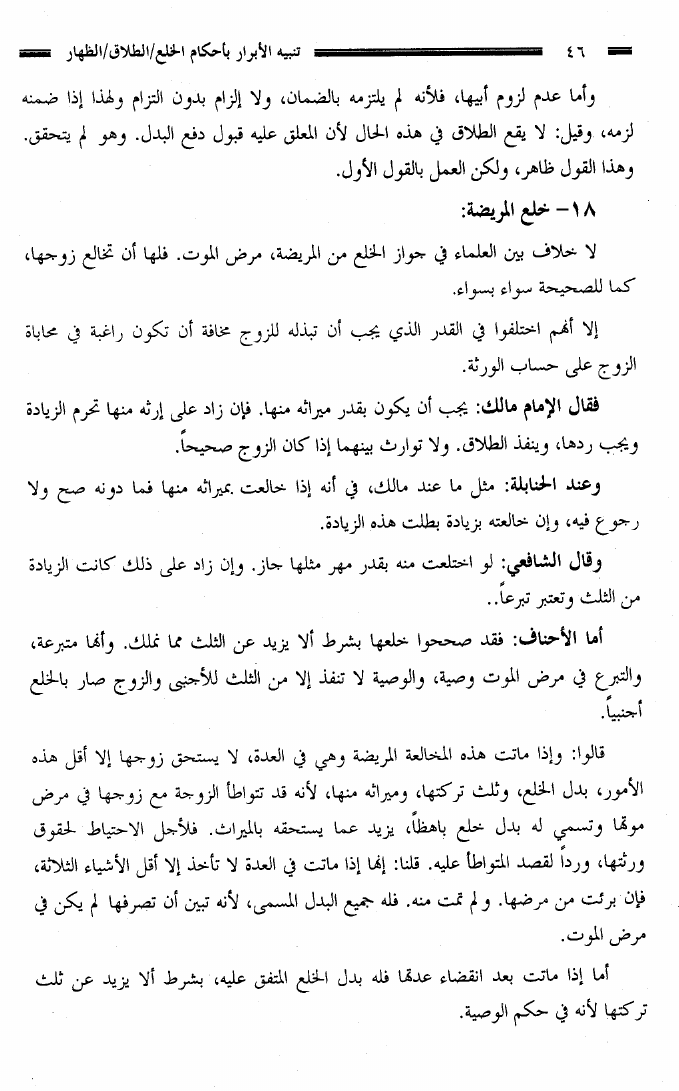 ٤٦ تنبيه الأبرار بأحكام الخلع/الطلاق/الظهار
وأما عدم لزوم أبيها، فلأنه لم يلتزمه بالضمان، ولا إلزام بدون التزام ولهذا إذا ضمنه
لزمه، وقيل: لا يقع الطلاق في هذه الحال لأن المعلق عليه قبول دفع البدل. وهو لم يتحقق.
وهذا القول ظاهر، ولكن العمل بالقول الأول.
١٨- خلع المريضة:
لا خلاف بين العلماء في جواز الخلع من المريضة، مرض الموت. فلها أن تخالع زوجها،
كما للصحيحة سواء بسواء.
إلا أنهم اختلفوا في القدر الذي يجب أن تبذله للزوج مخافة أن تكون راغبة في محاباة
الزوج على حساب الورثة.
فقال الإمام مالك: يجب أن يكون بقدر ميراثه منها. فإن زاد على إرثه منها تحرم الزيادة
ويجب ردها، وينفذ الطلاق. ولا توارث بينهما إذا كان الزوج صحيحاً.
وعند الحنابلة: مثل ما عند مالك، في أنه إذا خالعت بميراثه منها فما دونه صح ولا
رجوع فيه، وإن خالعته بزيادة بطلت هذه الزيادة.
وقال الشافعي: لو اختلعت منه بقدر مهر مثلها جاز. وإن زاد على ذلك كانت الزيادة
من الثلث وتعتبر تبرعاً..
أما الأحناف: فقد صححوا خلعها بشرط ألا يزيد عن الثلث مما تملك. وأنها متبرعة،
والتبرع في مرض الموت وصية، والوصية لا تنفذ إلا من الثلث للأجنبى والزوج صار بالخلع
أجنبياً.
قالوا: وإذا ماتت هذه المخالعة المريضة وهي في العدة، لا يستحق زوجها إلا أقل هذه
الأمور، بدل الخلع، وثلث تركتها، وميراثه منها، لأنه قد تتواطأ الزوجة مع زوجها في مرض
موتها وتسمي له بدل خلع باهظاً، يزيد عما يستحقه بالميراث. فلأجل الاحتياط لحقوق
ورثتها، ورداً لقصد المتواطأ عليه. قلنا: إنها إذا ماتت في العدة لا تأخذ إلا أقل الأشياء الثلاثة،
فإن برئت من مرضها. ولم تمت منه. فله جميع البدل المسمى، لأنه تبين أن تصرفها لم يكن في
مرض الموت.
أما إذا ماتت بعد انقضاء عدتها فله بدل الخلع المتفق عليه، بشرط ألا يزيد عن ثلث
تركتها لأنه في حكم الوصية.